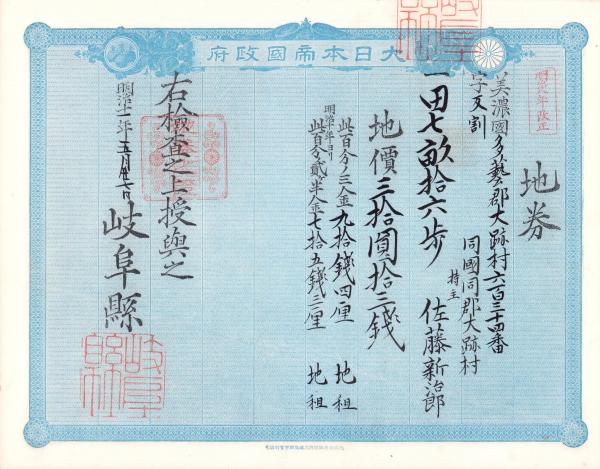 大日本帝國政府
地券
美濃國多藝郡大跡村六百三十四番
字反割
同國同郡大跡村
一田七畝拾六歩
持主
佐藤新治郎
地價三拾圓拾三錢
此百分ノ三金九拾錢四厘 地租
明治十年ヨリ
此百分ノ貳半金七拾五錢三厘 地租
右檢查之上授與之
明治十一年五月
岐阜縣
岐阜縣